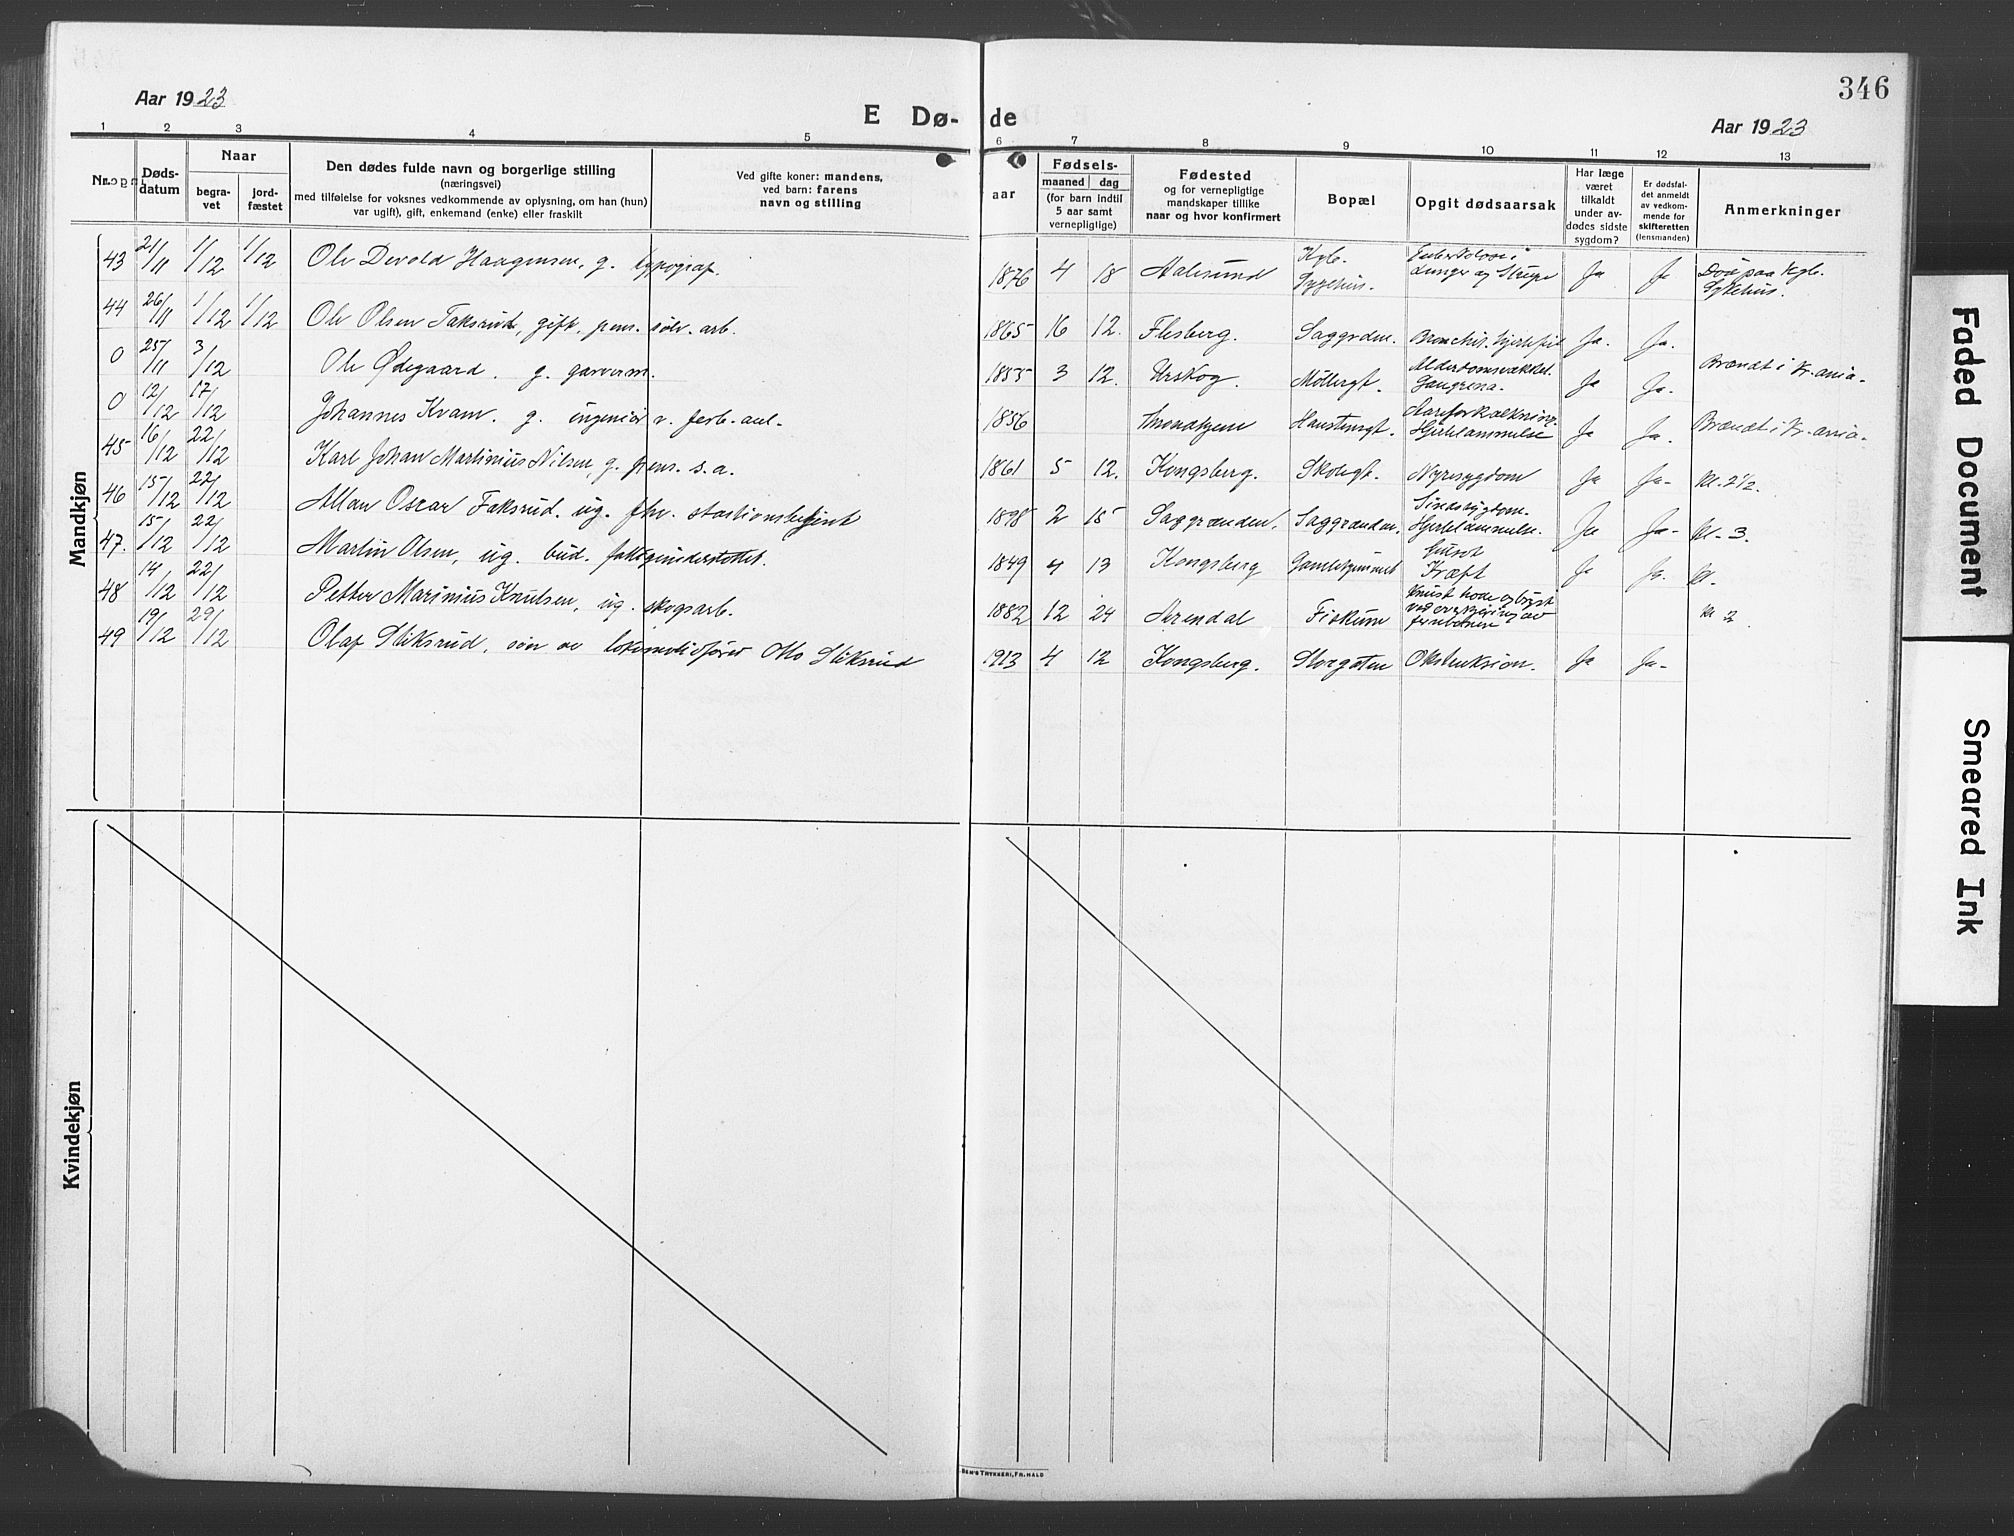 346
Aar 1923
E Dø- de
Aar 1923
1 2 3 4 5 6 7 8 9 10 11 12 13
Nr.
Døds-
datum
Naar
begra-
vet
jord-
fæstet
Den dødes fulde navn og borgerlige stilling
(næringsvei)
med tilføielse for voksnes vedkommende av oplysning, om han (hun)
var ugift), gift, enkemand (enke) eller fraskilt
Ved gifte koner: mandens,
ved barn: farens
navn og stilling
aar
Fødsels-
maaned dag
(for barn indtil
5 aar samt
vernepligtige)
Fødested
og for vernepligtige
mandskaper tillike
naar og hvor konfirmert
Bopæl
Opgit dødsaarsak
Har læge
været
tilkaldt
under av-
dødes sidste
sygdom?
Er dødsfal-
det anmeldt
av vedkom-
mende for
skifteretten
(lensmanden)
Anmerkninger
Mandkjøn
43 21/11 1/12 1/12 Ole Devold Haagensen, g. typograf. 1876 4 18 Aalesund Kgb. Sygehus. Tuberkulose i Lunger og Strupe Ja Ja Død paa Kgb. Sykehus.
44 26/11 1/12 1/12 Ole Olsen Taksrud, gift. pens. sølv. arb. 1865 16 12. Flesberg. Saggrden. Bronchit. hjertefeil Ja. Ja.
0 25/11 3/12 Ole Ødegaard. g. garverm. 1835 3 12. Urskog. Møllergt. Alderdomsvækkel. Gangrena. Ja Ja. Brændt i Kr.ania.
0 12/12 17/12 Johannes Kvam. g. ingeniør v. ferb. anl. 1856 Throndhjem Hanstengt. Aareforkalkning. Hjertelammelse Ja Ja. Brændt i Kr.ania.
45 16/12 22/12 Karl Johan Martinius Nilsen, g. pens. s. a. 1861 5 12. Kongsberg. Skolegt. Nyresygdom Ja Ja. Kl. 2½.
46 15/12 22/12 Allan Oscar Faksrud. ug. fhv. stationsbetjent 1898 2 15 Saggrænden. Saggrænden. Sindssygdom. Hjertelammelse. Ja Ja. kl. 3.
47. 15/12 22/12 Martin Olsen, ug. bud. 1849 4 13 Kongsberg Gamlehjemmet Kræft Ja Ja. kl.
48 14/12 22/12 Petter Marinius Knutsen, ug. skogsarb. 1882 12 24 Arendal Fiskum Knust hode og bryst ved overkjøring av kl 2
49 19/12 29/12 Olaf Stiksrud, søn av lokomotivfører Otto Stiksrud 1913 4 12 Kongsberg. Storgaten Obstruksion. Ja Ja.
Kvindekjøn
BEN'S TRYKKERI, FR. HALD
Faded Document
Smeared Ink